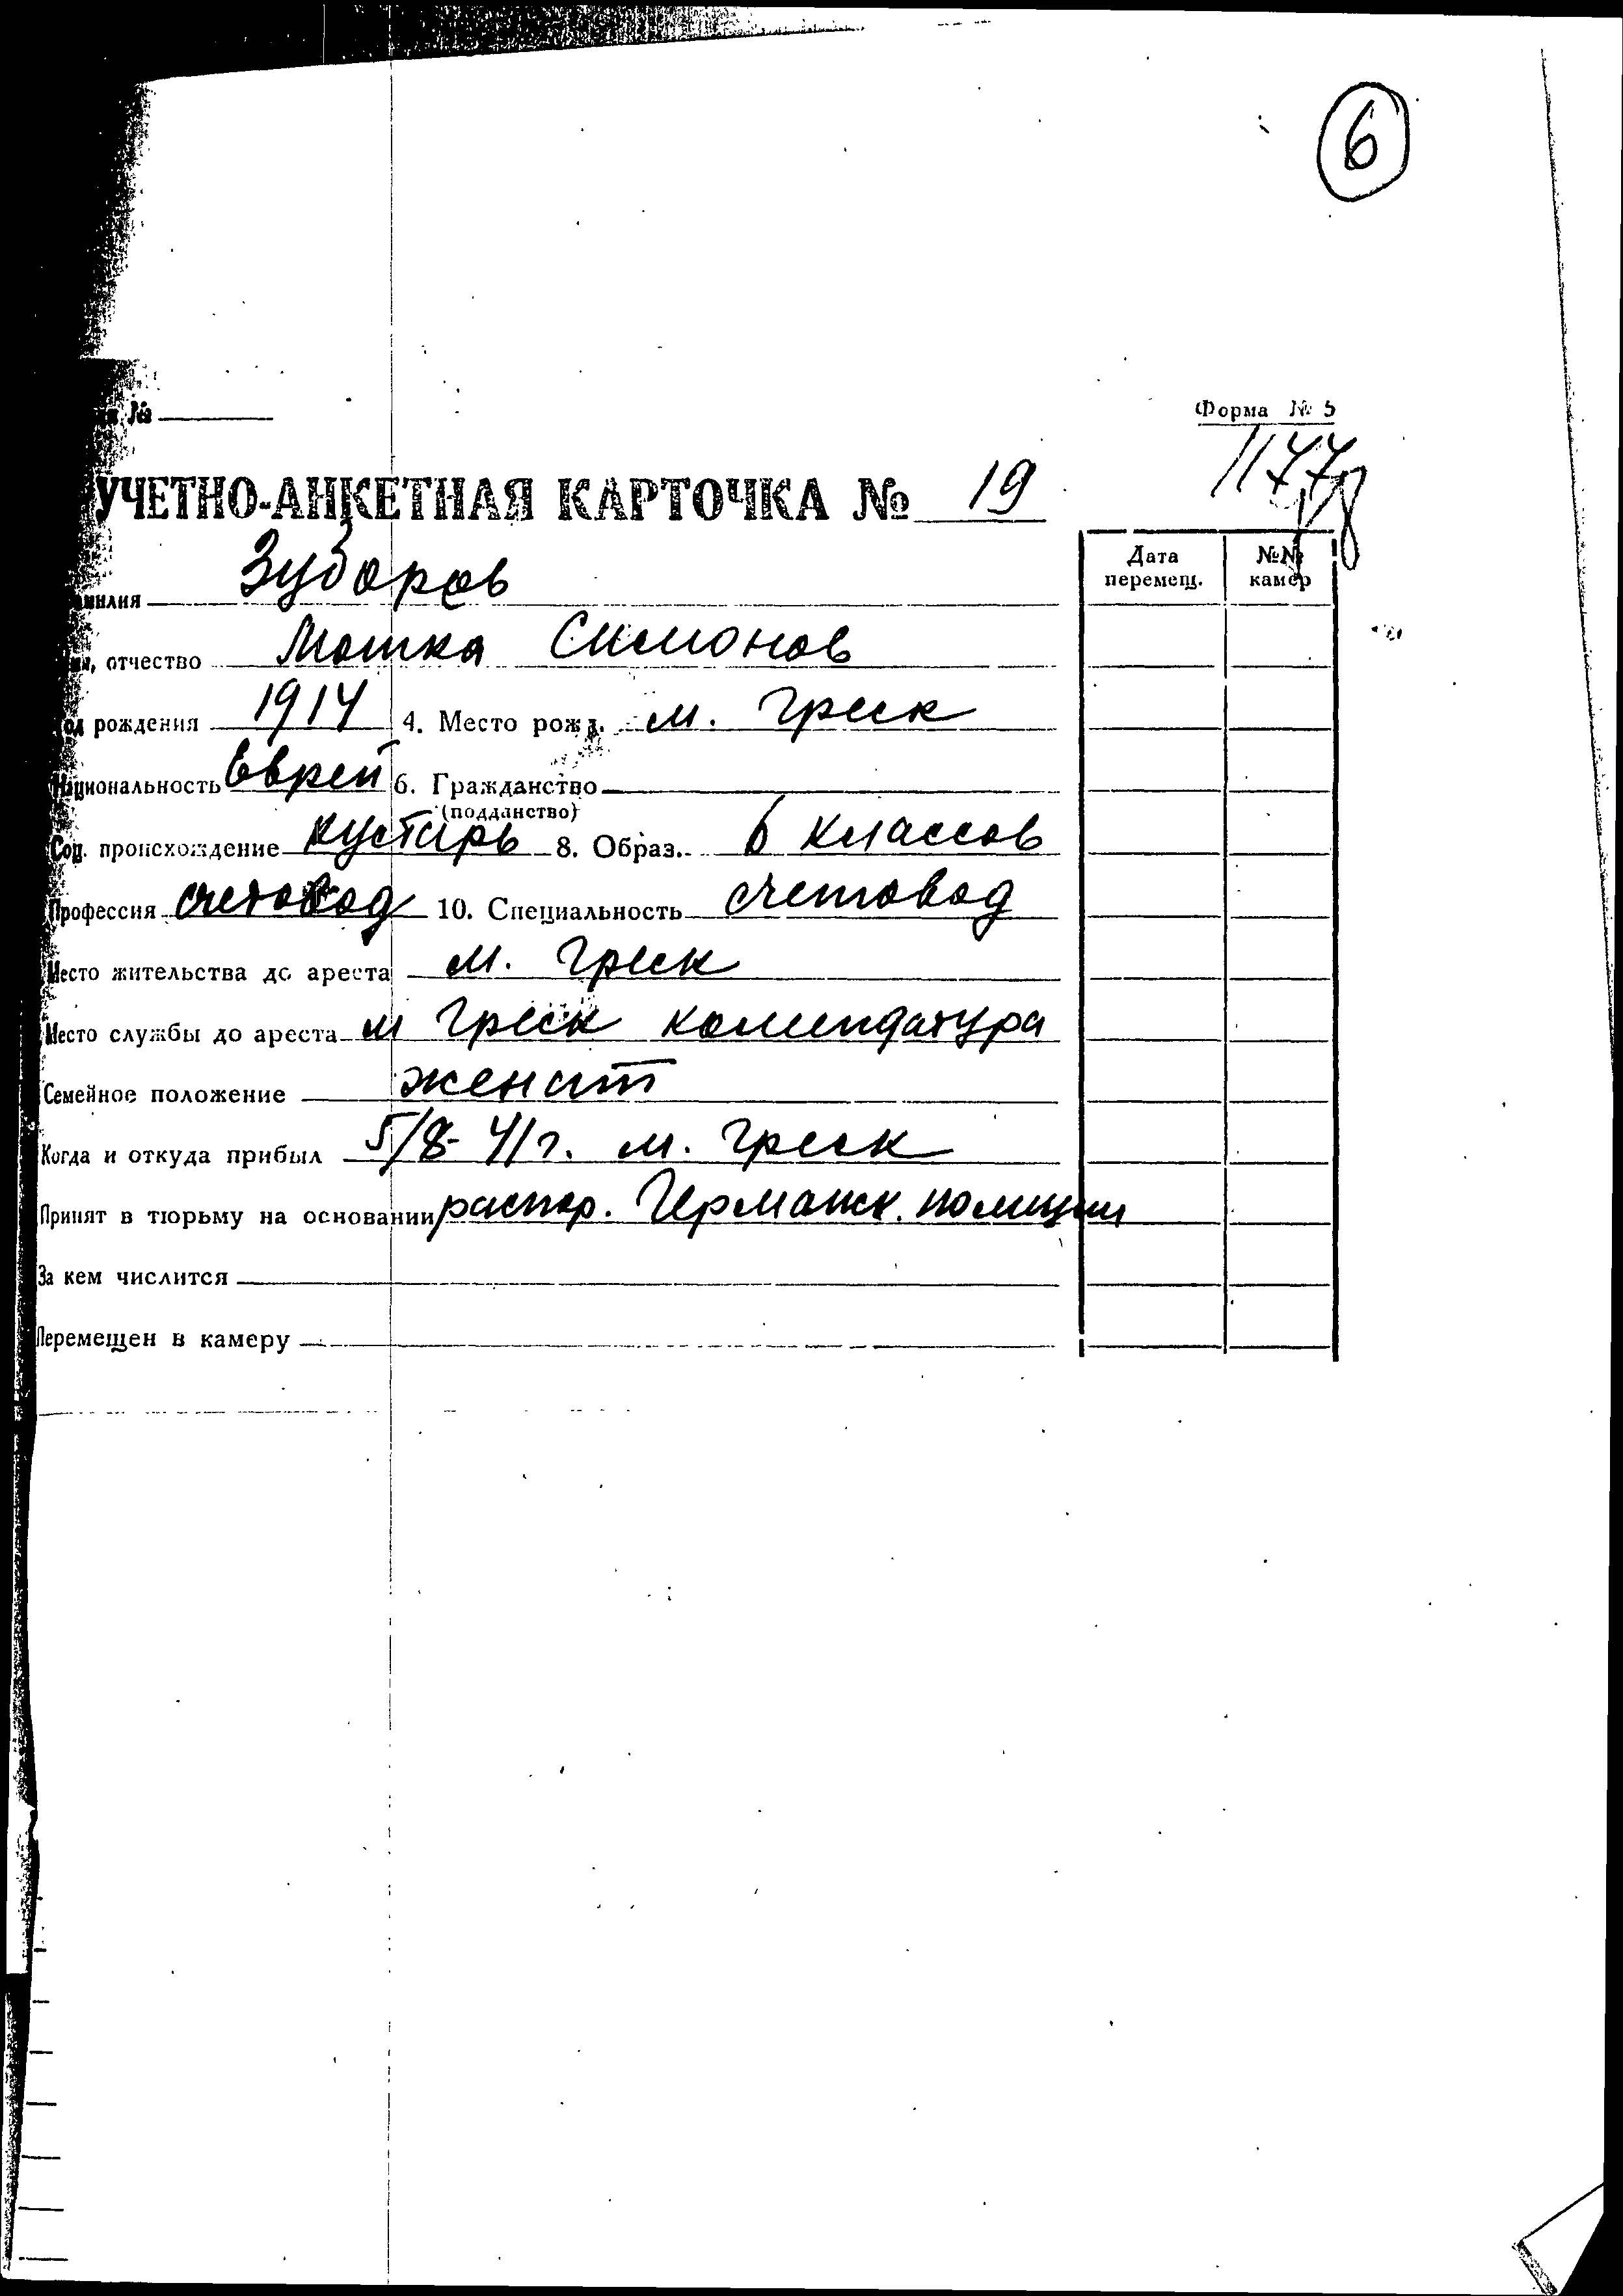 6
№
Форма № 5
УЧЕТНО-АНКЕТНАЯ КАРТОЧКА № 19
Дата перемещ. №№ камер
Зуборов
отчество Мошка Симонов
рождения 1914 4. Место рожд. м. Греск
Национальность Еврей 6. Гражданство
(подданство)
Соц. происхождение кустарь 8. Образ. 6 классов
Профессия счетовод 10. Специальность счетовод
Место жительства до ареста м. Греск
Место службы до ареста м Греск комендатура
Семейное положение женат
Когда и откуда прибыл 5/8-41г. м. Греск
Принят в тюрьму на основании распор. Германск. полиции
За кем числится
Перемещен в камеру